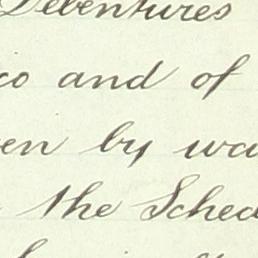 Debentures
co and of
en by wa
the Sched